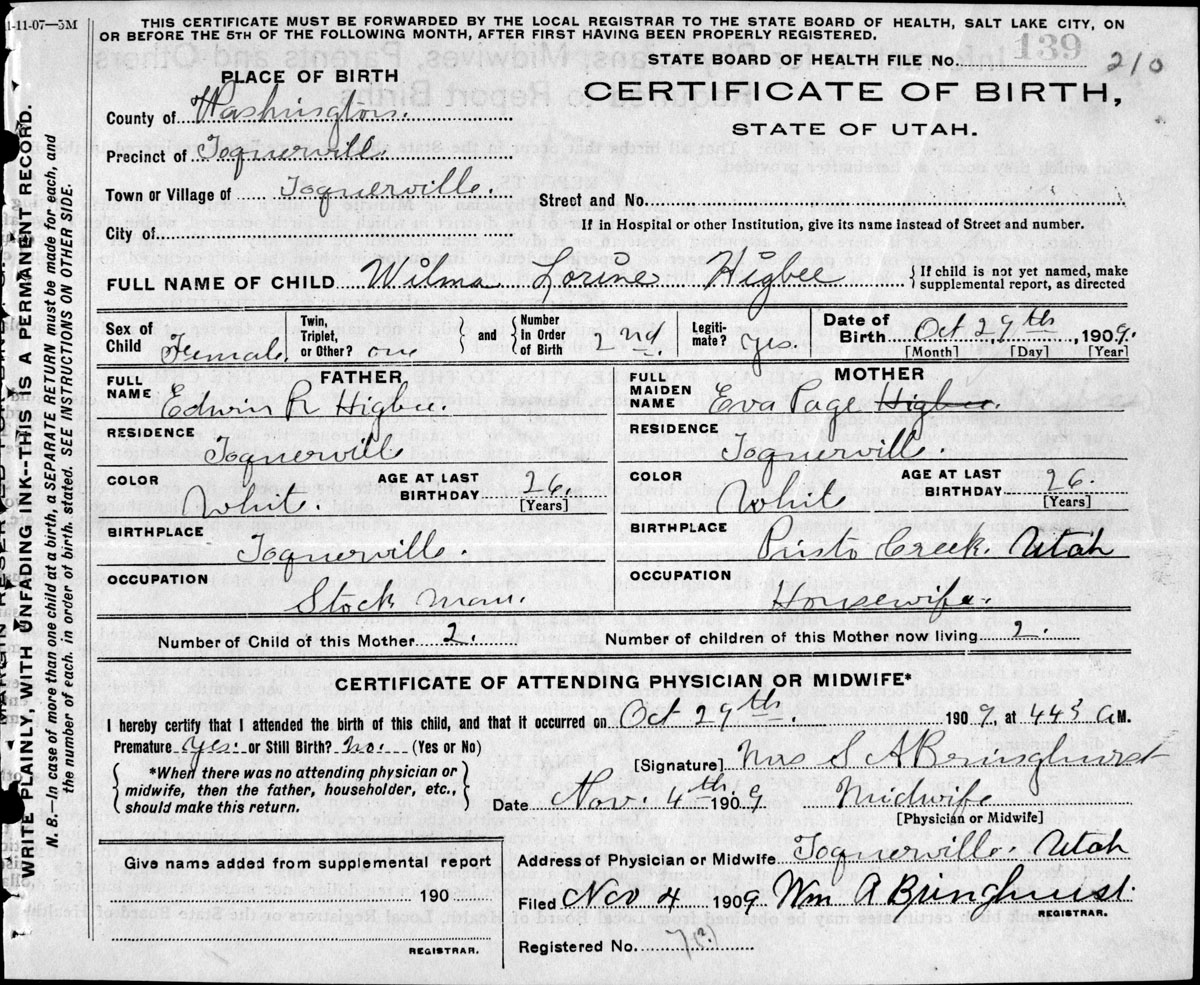 1-11-07—3M
THIS CERTIFICATE MUST BE FORWARDED BY THE LOCAL REGISTRAR TO THE STATE BOARD OF HEALTH, SALT LAKE CITY, ON
OR BEFORE THE 5TH OF THE FOLLOWING MONTH, AFTER FIRST HAVING BEEN PROPERLY REGISTERED.
STATE BOARD OF HEALTH FILE No. 139 210
PLACE OF BIRTH
CERTIFICATE OF BIRTH,
STATE OF UTAH.
County of Washington.
Precinct of Toquerville
Town or Village of Toquerville.
Street and No.
City of
If in Hospital or other Institution, give its name instead of Street and number.
FULL NAME OF CHILD Wilma Lorine Higbee
If child is not yet named, make
supplemental report, as directed
Sex of Child Female. Twin, Triplet, or Other? one and Number In Order of Birth 2nd. Legiti-mate? yes. Date of Birth Oct 29th, 1909.
[Month] [Day] [Year]
FATHER
FULL NAME Edwin R Higbee.
RESIDENCE Toquerville
COLOR White. AGE AT LAST BIRTHDAY 26.
[Years]
BIRTHPLACE Toquerville.
OCCUPATION Stock Man.
MOTHER
FULL MAIDEN NAME Eva Page Higbee.
RESIDENCE Toquerville.
COLOR White AGE AT LAST BIRTHDAY 26.
[Years]
BIRTHPLACE Pinto Creek. Utah
OCCUPATION Housewife.
Number of Child of this Mother 2. Number of children of this Mother now living 2.
CERTIFICATE OF ATTENDING PHYSICIAN OR MIDWIFE*
I hereby certify that I attended the birth of this child, and that it occurred on Oct 29th. 1909, at 445 A M.
Premature yes. or Still Birth? No. (Yes or No)
[Signature] Mrs S A Bringhurst
*When there was no attending physician or
midwife, then the father, householder, etc.,
should make this return.
Date Nov. 4th 1909 Midwife
[Physician or Midwife]
Give name added from supplemental report
190
REGISTRAR.
Address of Physician or Midwife Toquerville. Utah
Filed Nov 4 1909 Wm A Bringhurst.
REGISTRAR.
Registered No. 7(?)
WRITE PLAINLY WITH UNFADING INK--THIS IS A PERMANENT RECORD.
N. B.—In case of more than one child at a birth, a SEPARATE RETURN must be made for each, and
the number of each. in order of birth. stated. SEE INSTRUCTIONS ON OTHER SIDE.